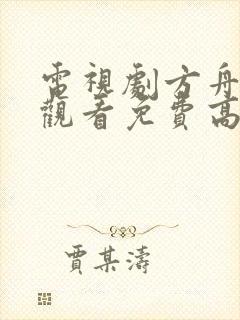 電視劇方舟
觀看免費高
賈某濤